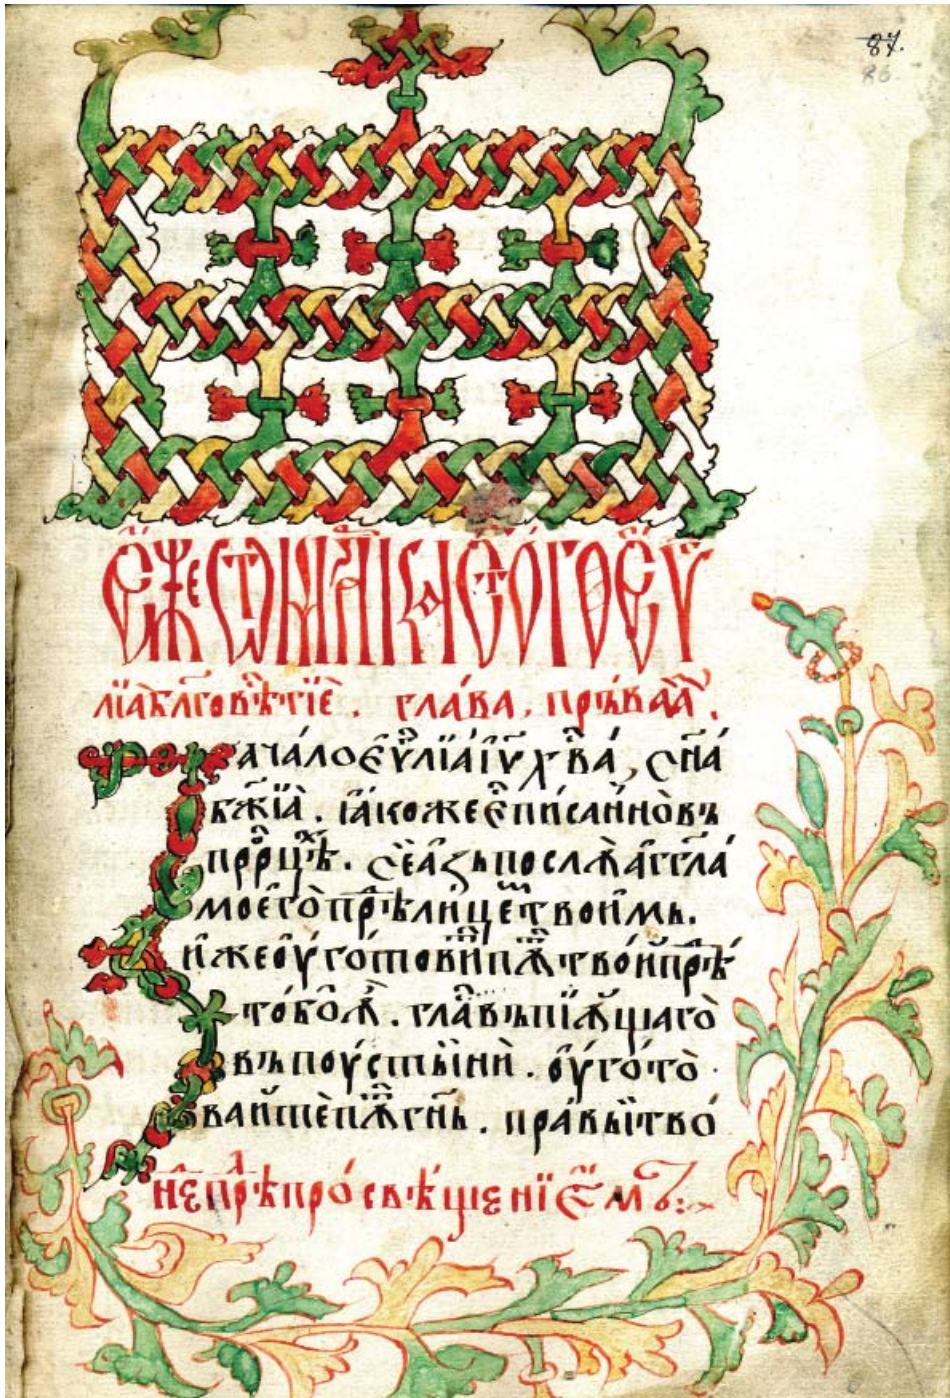 87.
86
Е҆же ѿ ма́рка ст҃о́го е҆ѵ҆
лїа бл҃гⷪвѣ́стїе . глава̀ . пръ́ваꙗ .
Зача́ло е҆ѵ҃лїа і҆ѵ҃ хв҃а , сн҃а
бж҃їа . ꙗ҆́коже е҆́ⷭ писа́нно въ
прⷪ҇ро́цѣⷯ . сѐ а҆́зъ посл꙯ѧ а҆́гг҃ла
моего̀ прⷣѣ лице́мⷨ твои҆́мь .
и҆́же оу҆гото́виⷮ пꙋⷮ тво́и прⷣѣ
тобо́ѧ . гла́ⷭ въпїѧ́щаго
въ поусты́ни . оу҆гото
ва́йте пѫⷮ гн҃ь . пра́вы тво
неⷣ прⷣѣ просвѣще́нїеⷨ